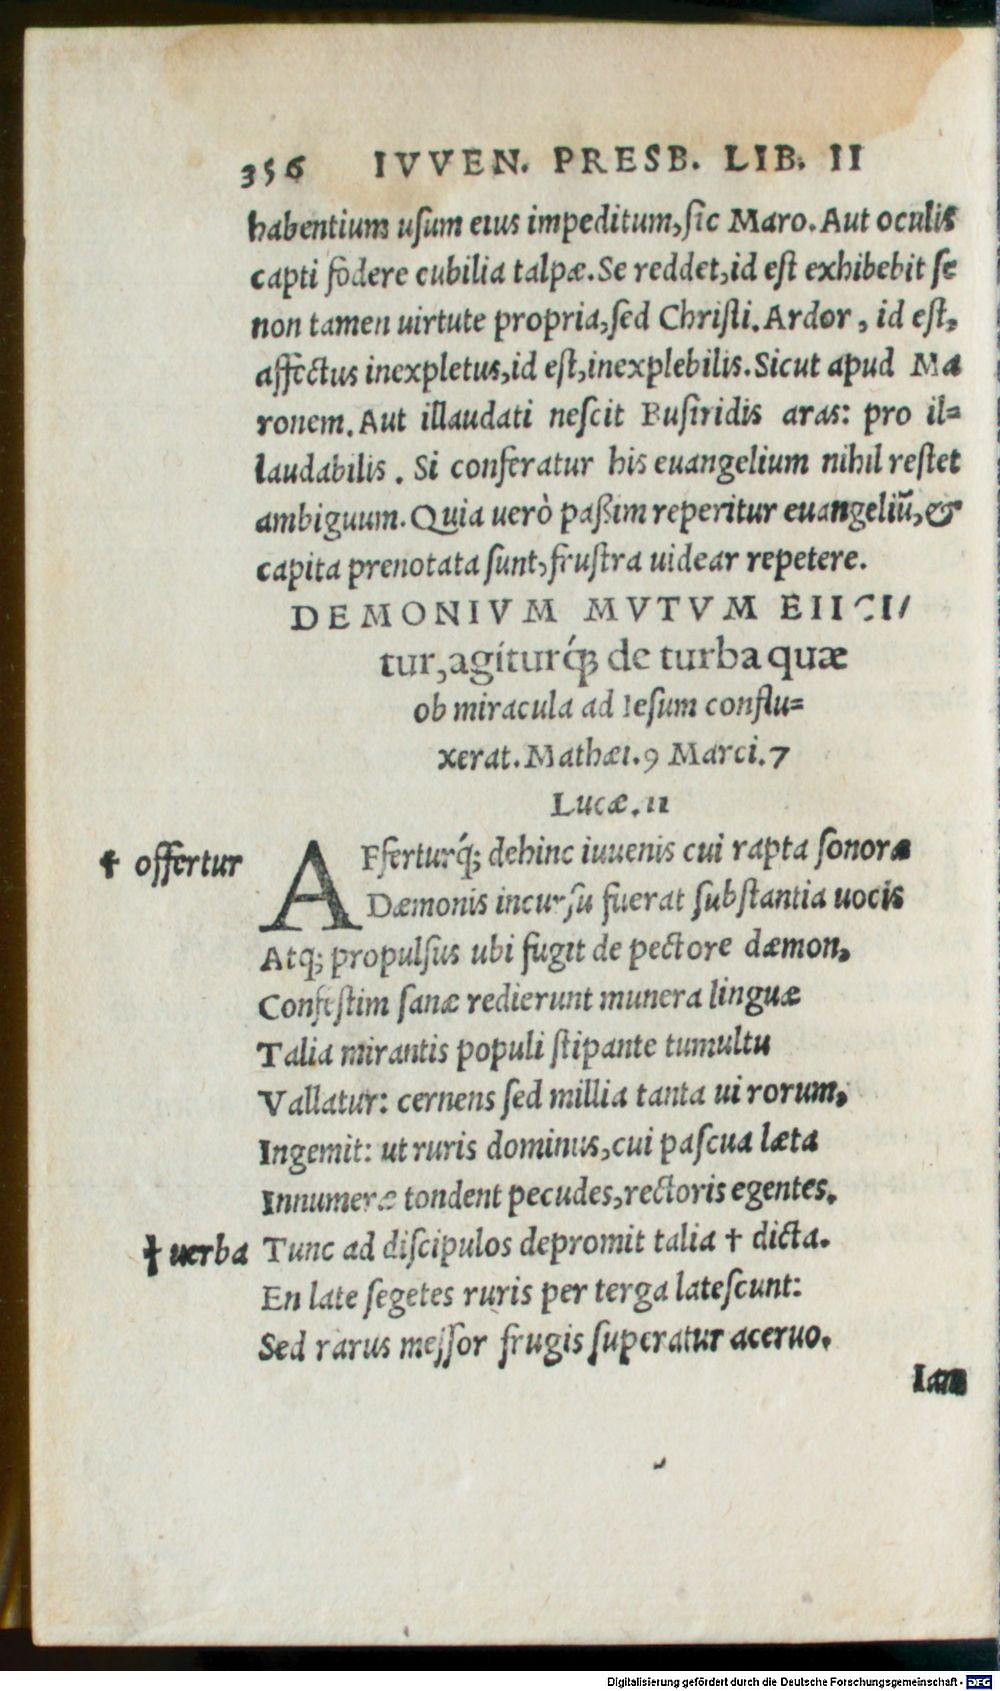 356 IVVEN. PRESB. LIB. II
habentium uſum eius impeditum, ſic Maro. Aut oculis
capti fodere cubilia talpæ. Se reddet, id eſt exhibebit ſe
non tamen uirtute propria, ſed Chriſti. Ardor, id eſt,
affectus inexpletus, id eſt, inexplebilis. Sicut apud Ma
ronem. Aut illaudati neſcit Buſiridis aras: pro il=
laudabilis. Si conferatur his euangelium nihil reſtet
ambiguum. Quia uerò paßim reperitur euangeliũ, &
capita prenotata ſunt, fruſtra uidear repetere.
DEMONIVM MVTVM EIICI/
tur, agíturq́; de turba quæ
ob miracula ad Ieſum conflu=
xerat. Mathæi. 9 Marci. 7
Lucæ. 11
† offertur
AFferturq́; dehinc iuuenis cui rapta ſonoræ
Dæmonis incurſu fuerat ſubſtantia uocis
Atq; propulſus ubi fugit de pectore dæmon,
Confeſtim ſanæ redierunt munera linguæ
Talia mirantis populi ſtipante tumultu
Vallatur: cernens ſed millia tanta ui rorum,
Ingemit: ut ruris dominus, cui paſcua læta
Innumeræ tondent pecudes, rectoris egentes.
† uerba Tunc ad diſcipulos depromit talia † dicta.
En late ſegetes ruris per terga lateſcunt:
Sed rarus meſſor frugis ſuperatur aceruo.
Iam
Digitalisierung gefördert durch die Deutsche Forschungsgemeinschaft - DFG